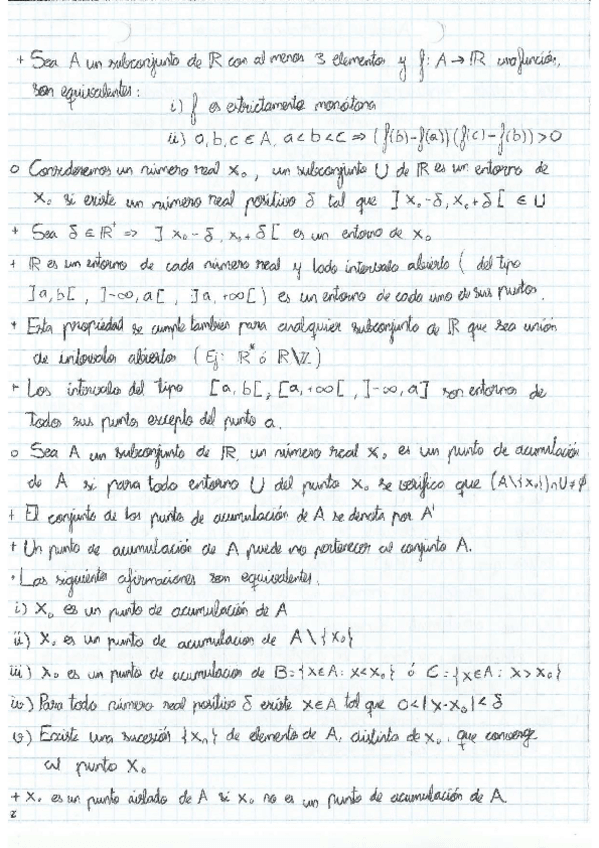 + Sea A un subconjunto de ℝ con al menos 3 elementos y f: A → ℝ una función,
son equivalentes:
i) f es estrictamente monótona
ii) a,b,c ∈ A, a<b<c ⇒ (f(b)-f(a))(f(c)-f(b))>0
o Consideremos un número real x₀, un subconjunto U de ℝ es un entorno de
x₀ si existe un número real positivo δ tal que ]x₀-δ, x₀+δ[ ∈ U
+ Sea δ ∈ ℝ⁺ ⇒ ]x₀-δ, x₀+δ[ es un entorno de x₀
+ ℝ es un entorno de cada número real y todo intervalo abierto (del tipo
]a,b[, ]-∞,a[, ]a,+∞[) es un entorno de cada uno de sus puntos.
+ Esta propiedad se cumple tambien para cualquier subconjunto de ℝ que sea unión
de intervalos abiertos (Ej: ℝ* ó ℝ\ℤ)
+ Los intervalos del tipo [a,b[, [a,+∞[, ]-∞,a] son entornos de
todos sus puntos excepto del punto a.
o Sea A un subconjunto de ℝ, un número real x₀ es un punto de acumulación
de A si para todo entorno U del punto x₀ se verifica que (A\{x₀})∩U≠∅
+ El conjunto de los puntos de acumulación de A se denota por A'
+ Un punto de acumulación de A puede no pertenecer al conjunto A.
· Las siguientes afirmaciones son equivalentes.
i) x₀ es un punto de acumulación de A
ii) x₀ es un punto de acumulacion de A\{x₀}
iii) x₀ es un punto de acumulacion de B={x∈A: x<x₀} ó C={x∈A: x>x₀}
iv) Para todo número real positivo δ existe x∈A tal que 0<|x-x₀|<δ
v) Existe una sucesión {xₙ} de elementos de A, distintos de x₀, que converge
al punto x₀
+ x₀ es un punto aislado de A si x₀ no es un punto de acumulación de A
2